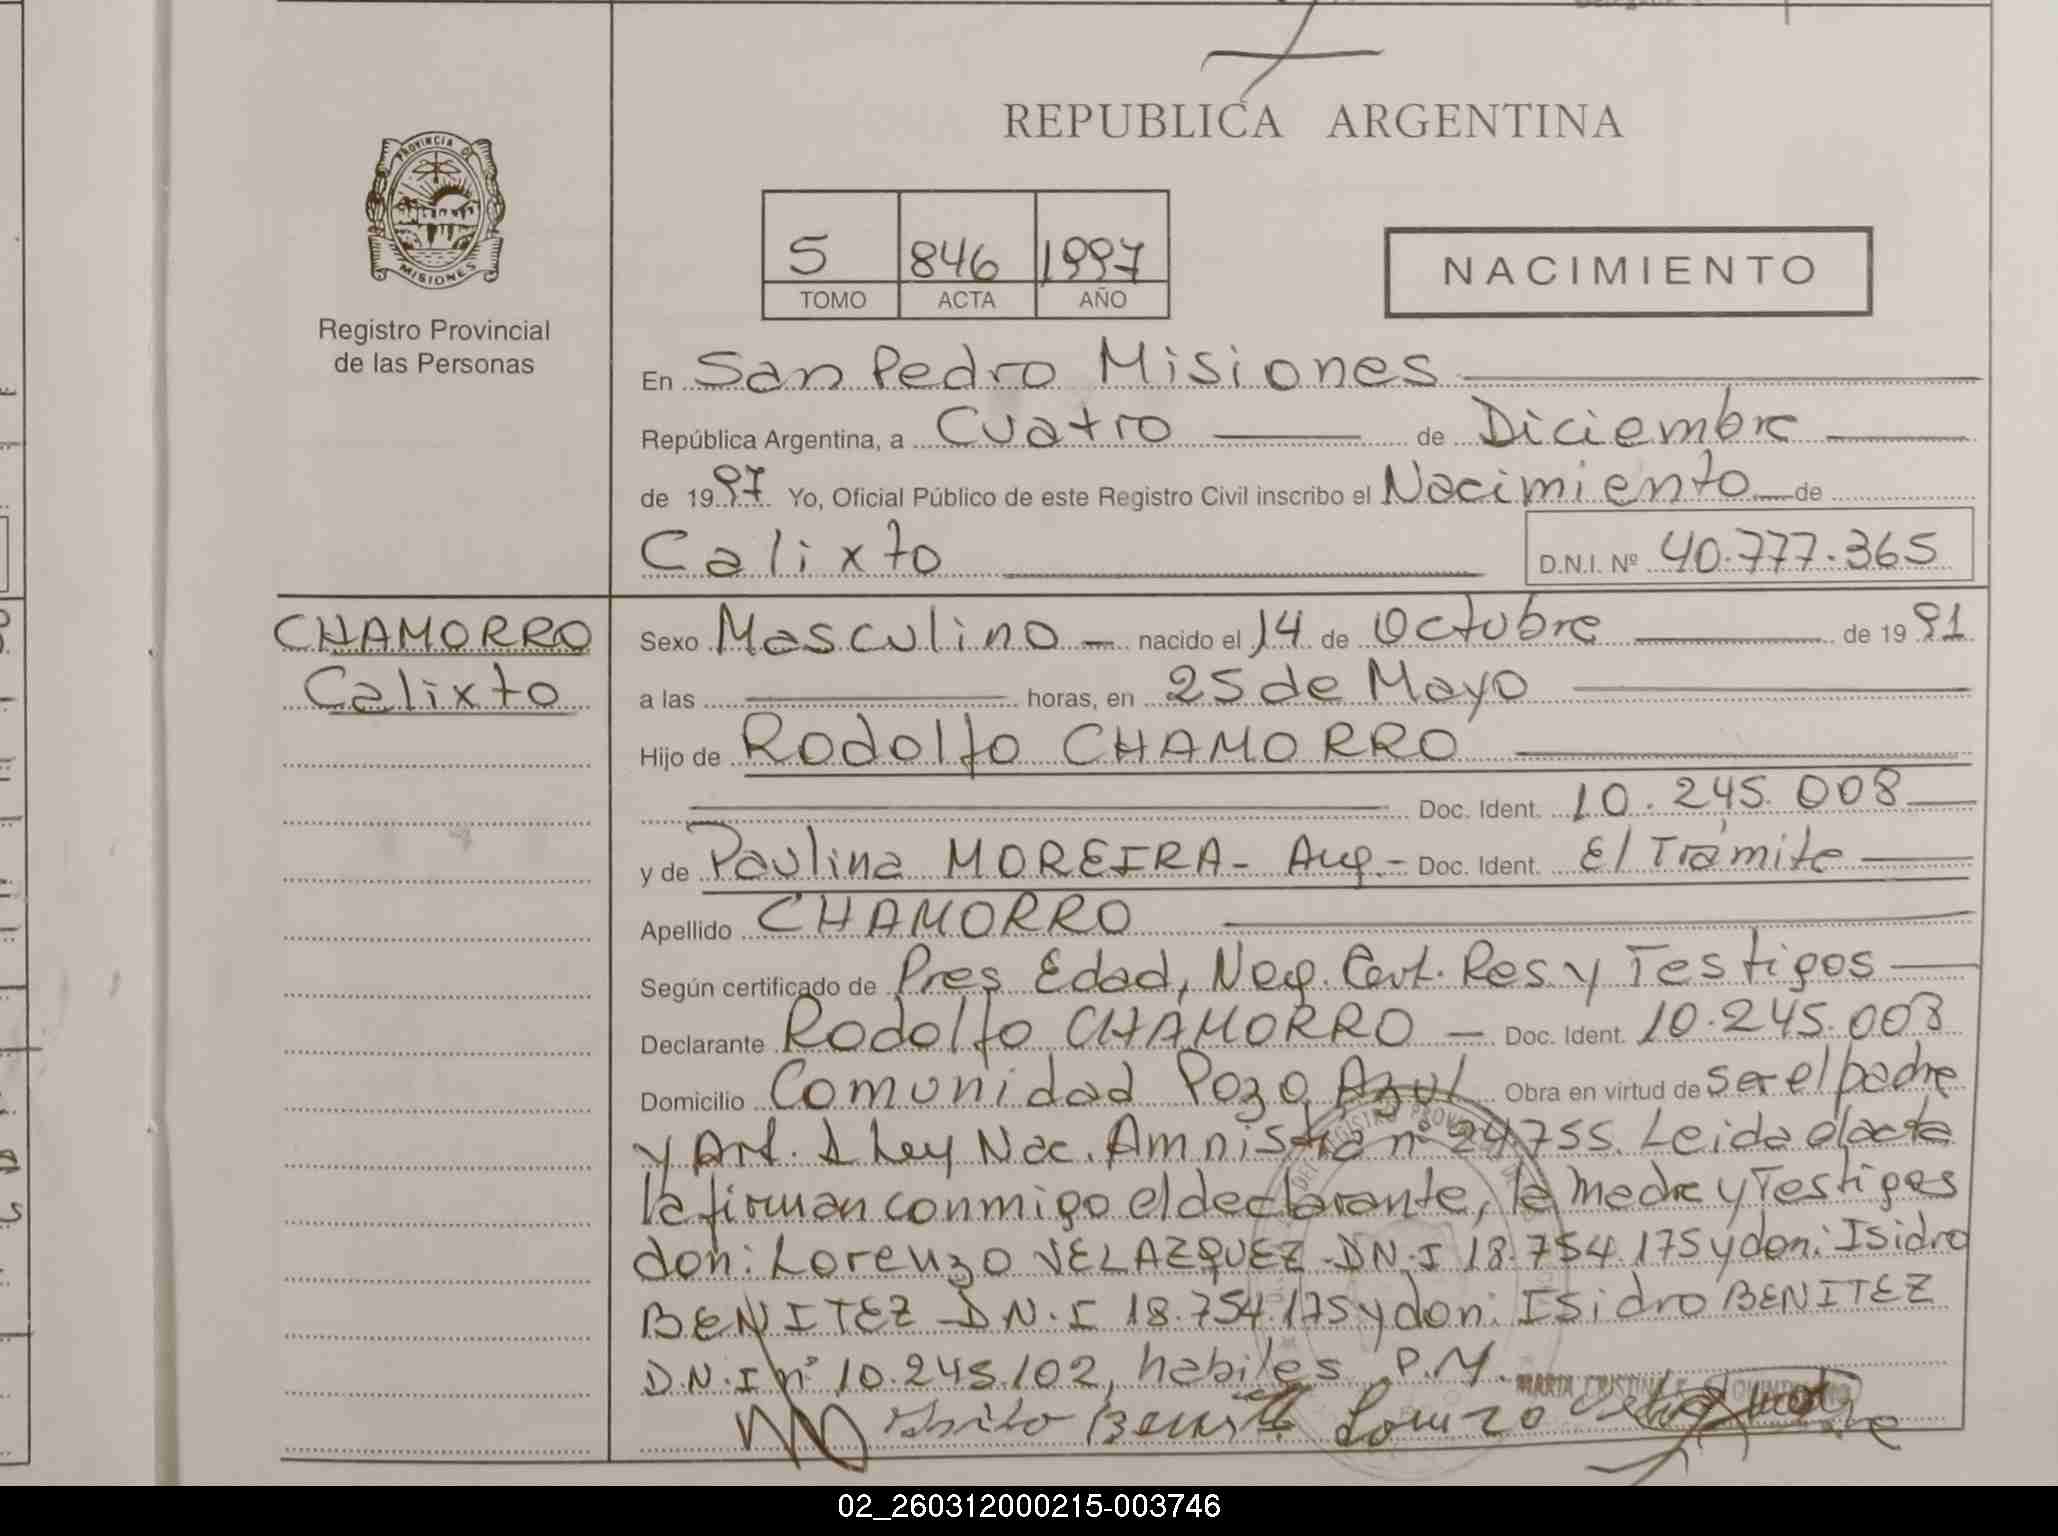 REPUBLICA ARGENTINA
PROVINCIA DE
MISIONES
Registro Provincial
de las Personas
5 846 1997
TOMO ACTA AÑO
NACIMIENTO
En San Pedro Misiones
República Argentina, a Cuatro de Diciembre
de 1997 Yo, Oficial Público de este Registro Civil inscribo el Nacimiento de
Calixto D.N.I. Nº 40.777.365
CHAMORRO
Calixto
Sexo Masculino nacido el 14 de Octubre de 1991
a las horas, en 25 de Mayo
Hijo de Rodolfo CHAMORRO
Doc. Ident. 10.245.008
y de Paulina MOREIRA - Aug.- Doc. Ident. El Trámite
Apellido CHAMORRO
Según certificado de Pres Edad, Neg. Cert. Res y Testigos
Declarante Rodolfo CHAMORRO — Doc. Ident. 10.245.008
Domicilio Comunidad Pozo Azul Obra en virtud de ser el padre
y Art. 1 Ley Nac. Amnistia nº 24755. Leida el acta
la firman conmigo el declarante, la madre y Testigos
don: Lorenzo VELAZQUEZ D.N.I 18.754.175 y don: Isidro
BENITEZ D.N.I 18.754.175 y don: Isidro BENITEZ
D.N.I nº 10.245.102, habiles P.M.
MARIA CRISTINA
Lorenzo
02_260312000215-003746